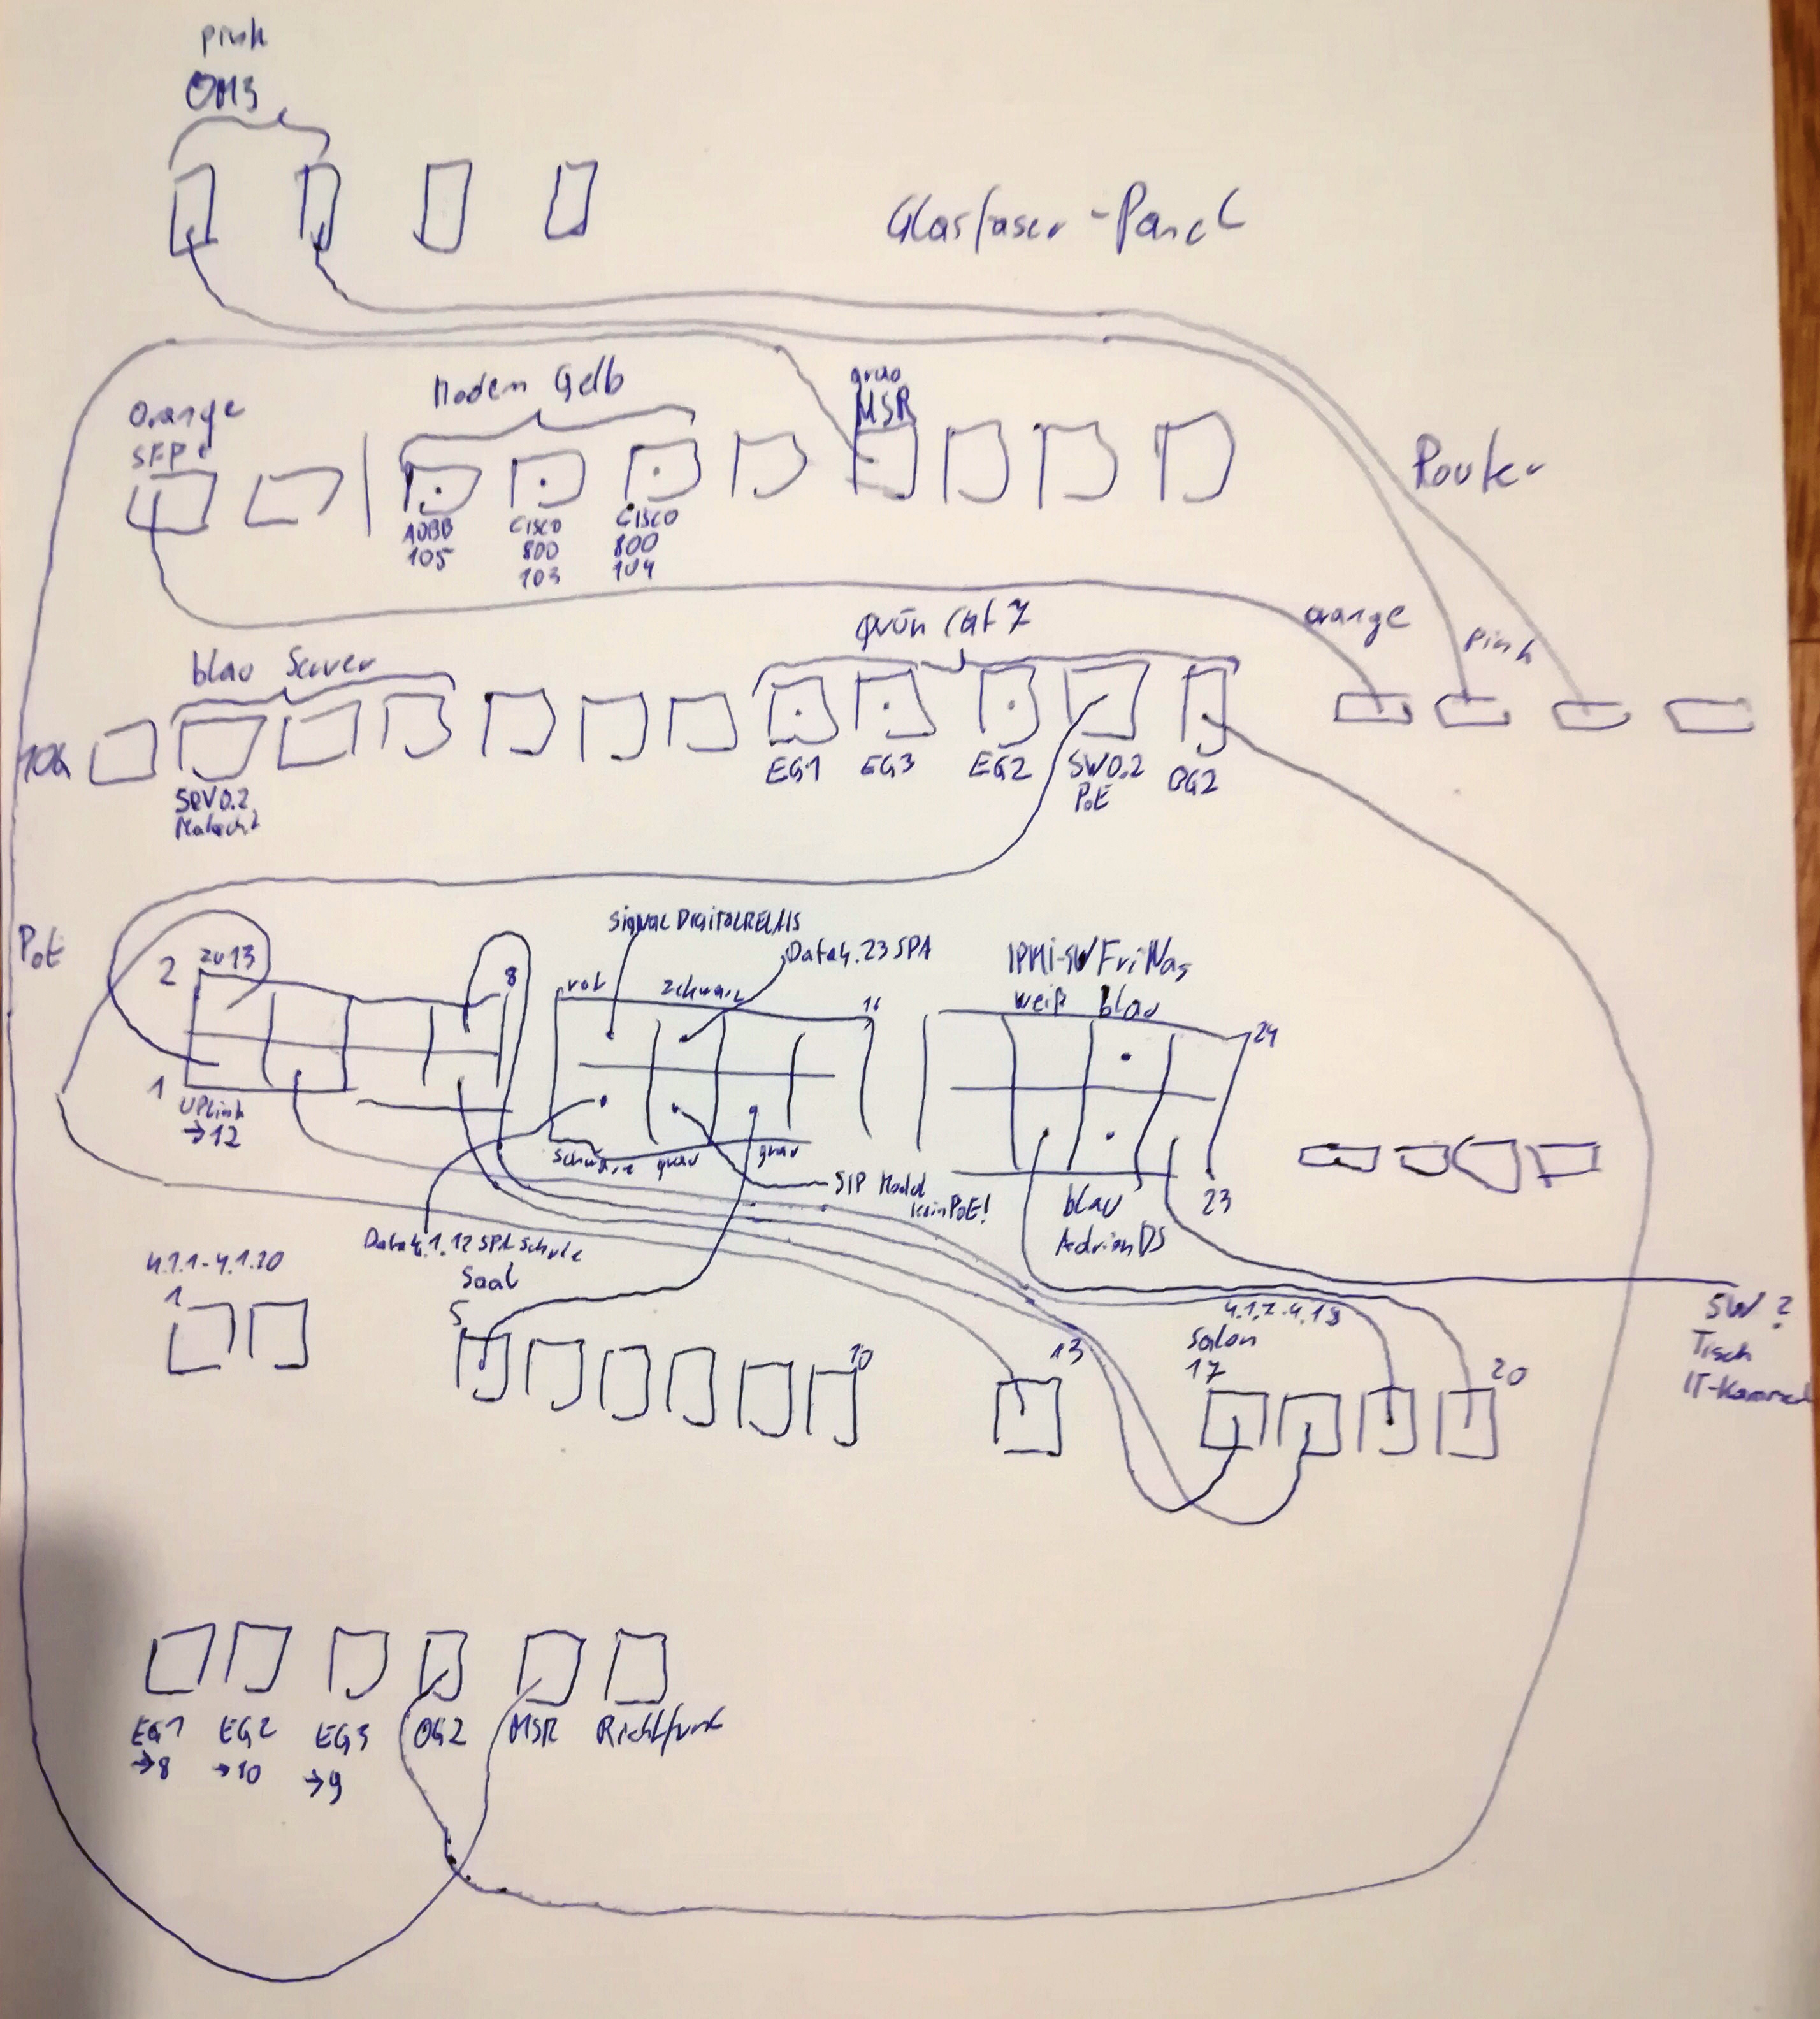 pink
OM3
Glasfaser-Panel
Modem Gelb
grau
MSR
Orange
SFP+
Router
ADBB
105
CISCO
800
103
CISCO
800
104
orange
pink
grün Cat 7
blau Server
10G
EG1
EG3
EG2
SW0.2
PoE
OG2
SRV0.2
PoE
2
zu 13
8
SIGNAL DIGITALRELAIS
Data4.23 SPA
IPMI-SW FriNas
weiß blau
rot
schwarz
16
24
1
UPLink
→12
schwarz grau
grau
SIP Model
kein PoE!
blau
AdrianDS
23
Data4.1.12 SPA Schule
4.1.1-4.1.20
1
Saal
5
10
13
4.1.7.-4.18
Salon
17
20
SW?
Tisch
IT-Kammer
EG1
→8
EG2
→10
EG3
→9
OG2
MSR
Richtfunk